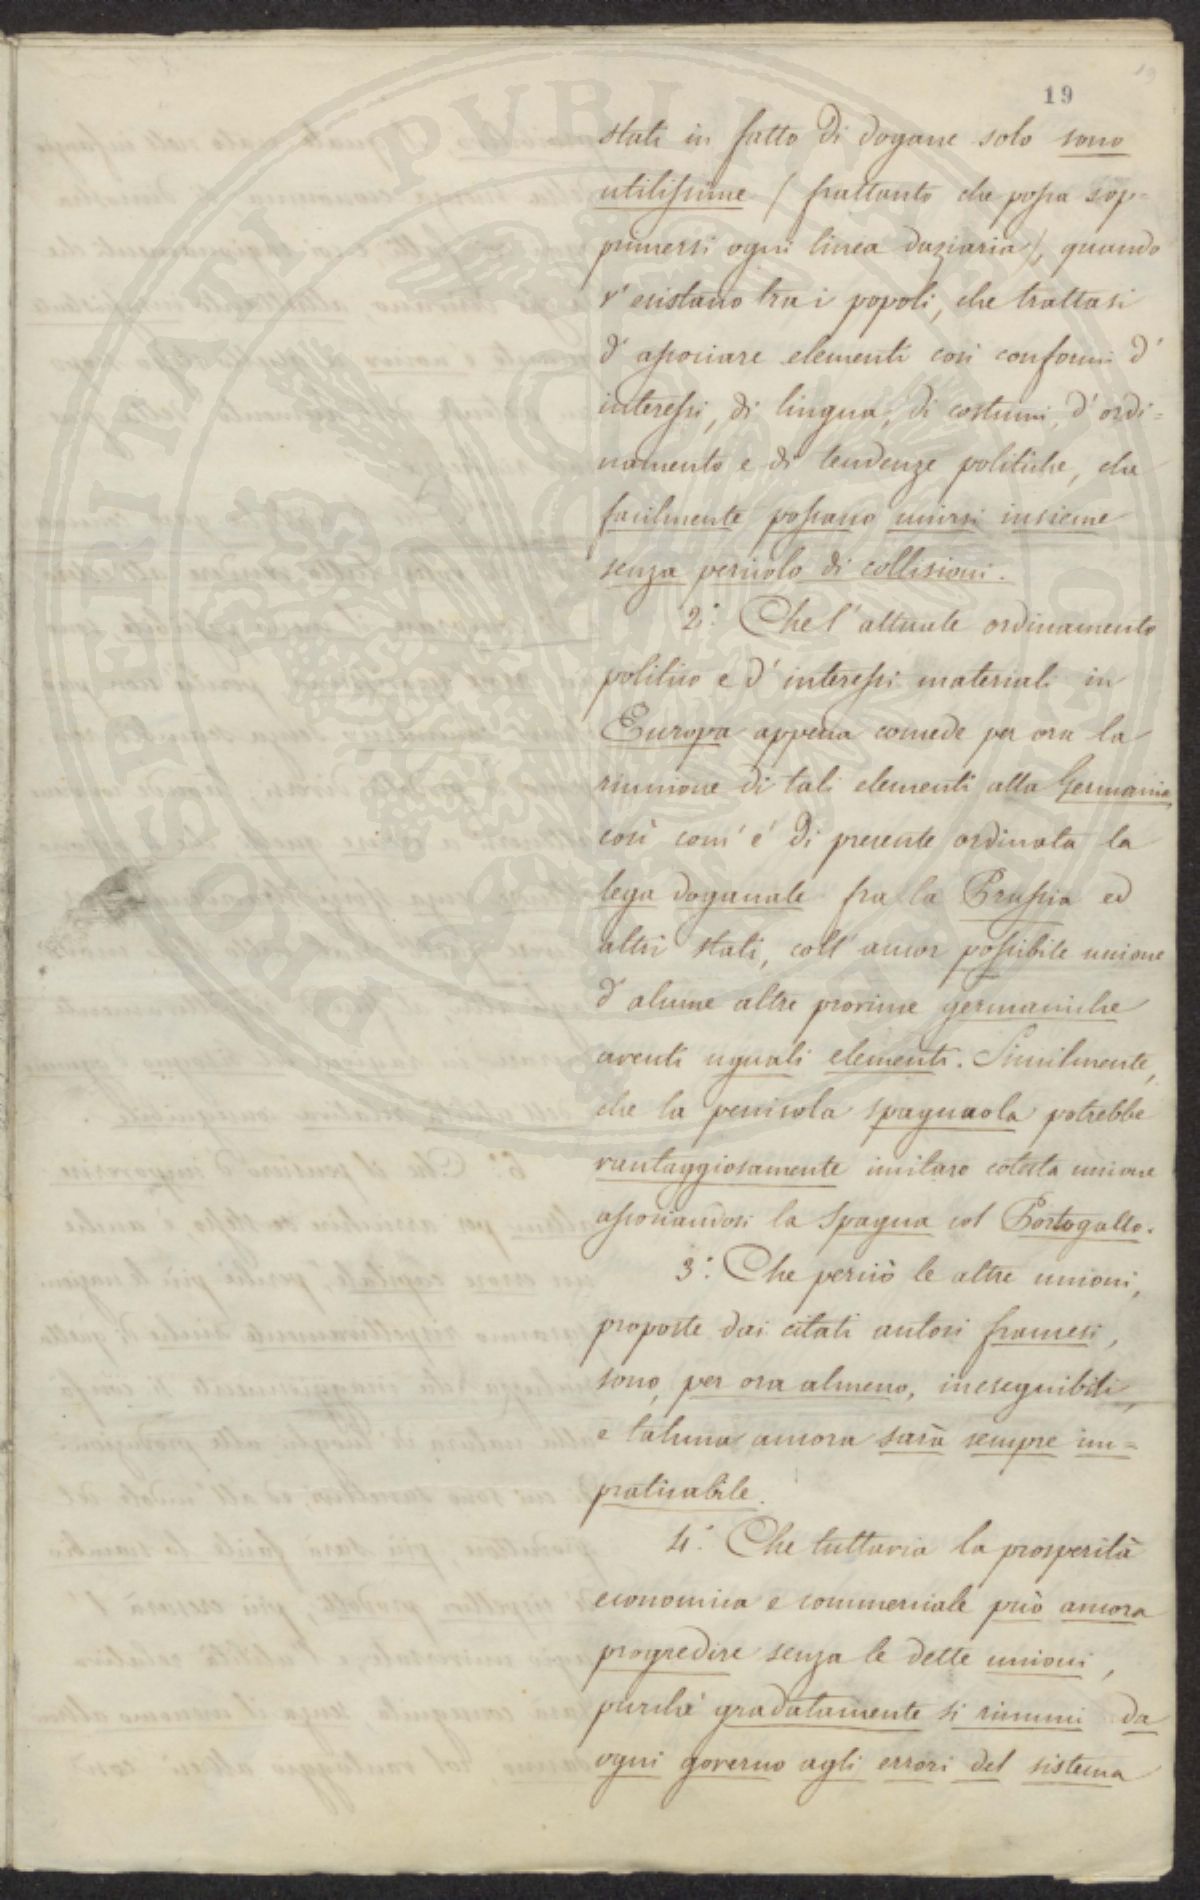 19
stati in fatto di dogane solo sono
utilissime (frattanto che possa sop=
primersi ogni linea daziaria), quando
v' esistano tra i popoli, che trattasi
d' associare elementi così conformi d'
interessi, di lingua, di costumi, d' ordi=
namento e di tendenze politiche, che
facilmente possano unirsi insieme
senza pericolo di collisioni.
2.° Che l' attuale ordinamento
politico e d' interessi materiali in
Europa appena concede per ora la
riunione di tali elementi alla Germania
così com' è di presente ordinata la
lega doganale fra la Prussia ed
altri stati, coll' ancor possibile unione
d' alcune altre provincie germaniche
aventi uguali elementi. Similmente,
che la penisola spagnuola potrebbe
vantaggiosamente imitare cotesta unione
associandosi la Spagna col Portogallo.
3.° Che perciò le altre unioni,
proposte dai citati autori francesi,
sono, per ora almeno, ineseguibili,
e taluna ancora sarà sempre im=
praticabile.
4.° Che tuttavia la prosperità
economica e commerciale può ancora
progredire senza le dette unioni,
purchè gradatamente si rinunci da
ogni governo agli errori del sistema
PROSPERITATI PVBLICAE